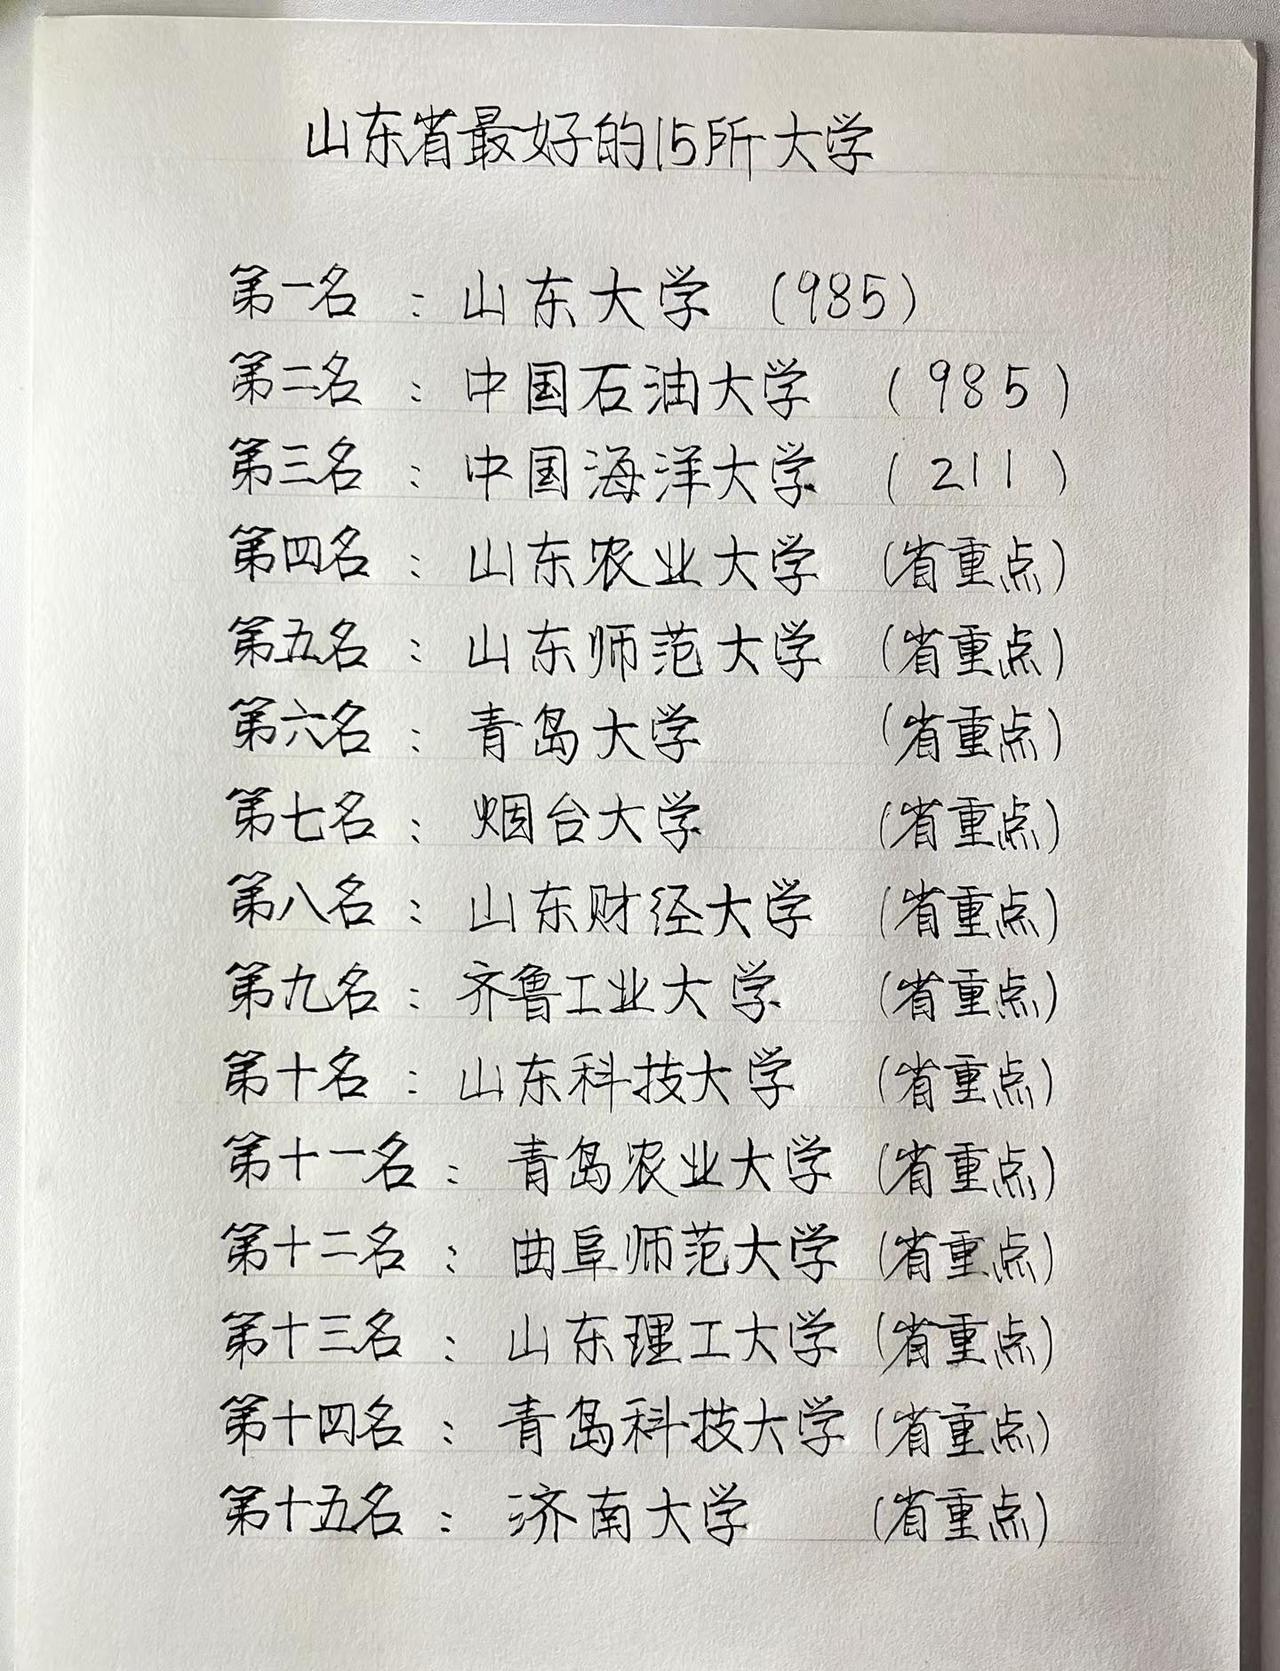 山东省最好的15所大学
第一名：山东大学（985）
第二名：中国石油大学（985）
第三名：中国海洋大学（211）
第四名：山东农业大学（省重点）
第五名：山东师范大学（省重点）
第六名：青岛大学（省重点）
第七名：烟台大学（省重点）
第八名：山东财经大学（省重点）
第九名：齐鲁工业大学（省重点）
第十名：山东科技大学（省重点）
第十一名：青岛农业大学（省重点）
第十二名：曲阜师范大学（省重点）
第十三名：山东理工大学（省重点）
第十四名：青岛科技大学（省重点）
第十五名：济南大学（省重点）